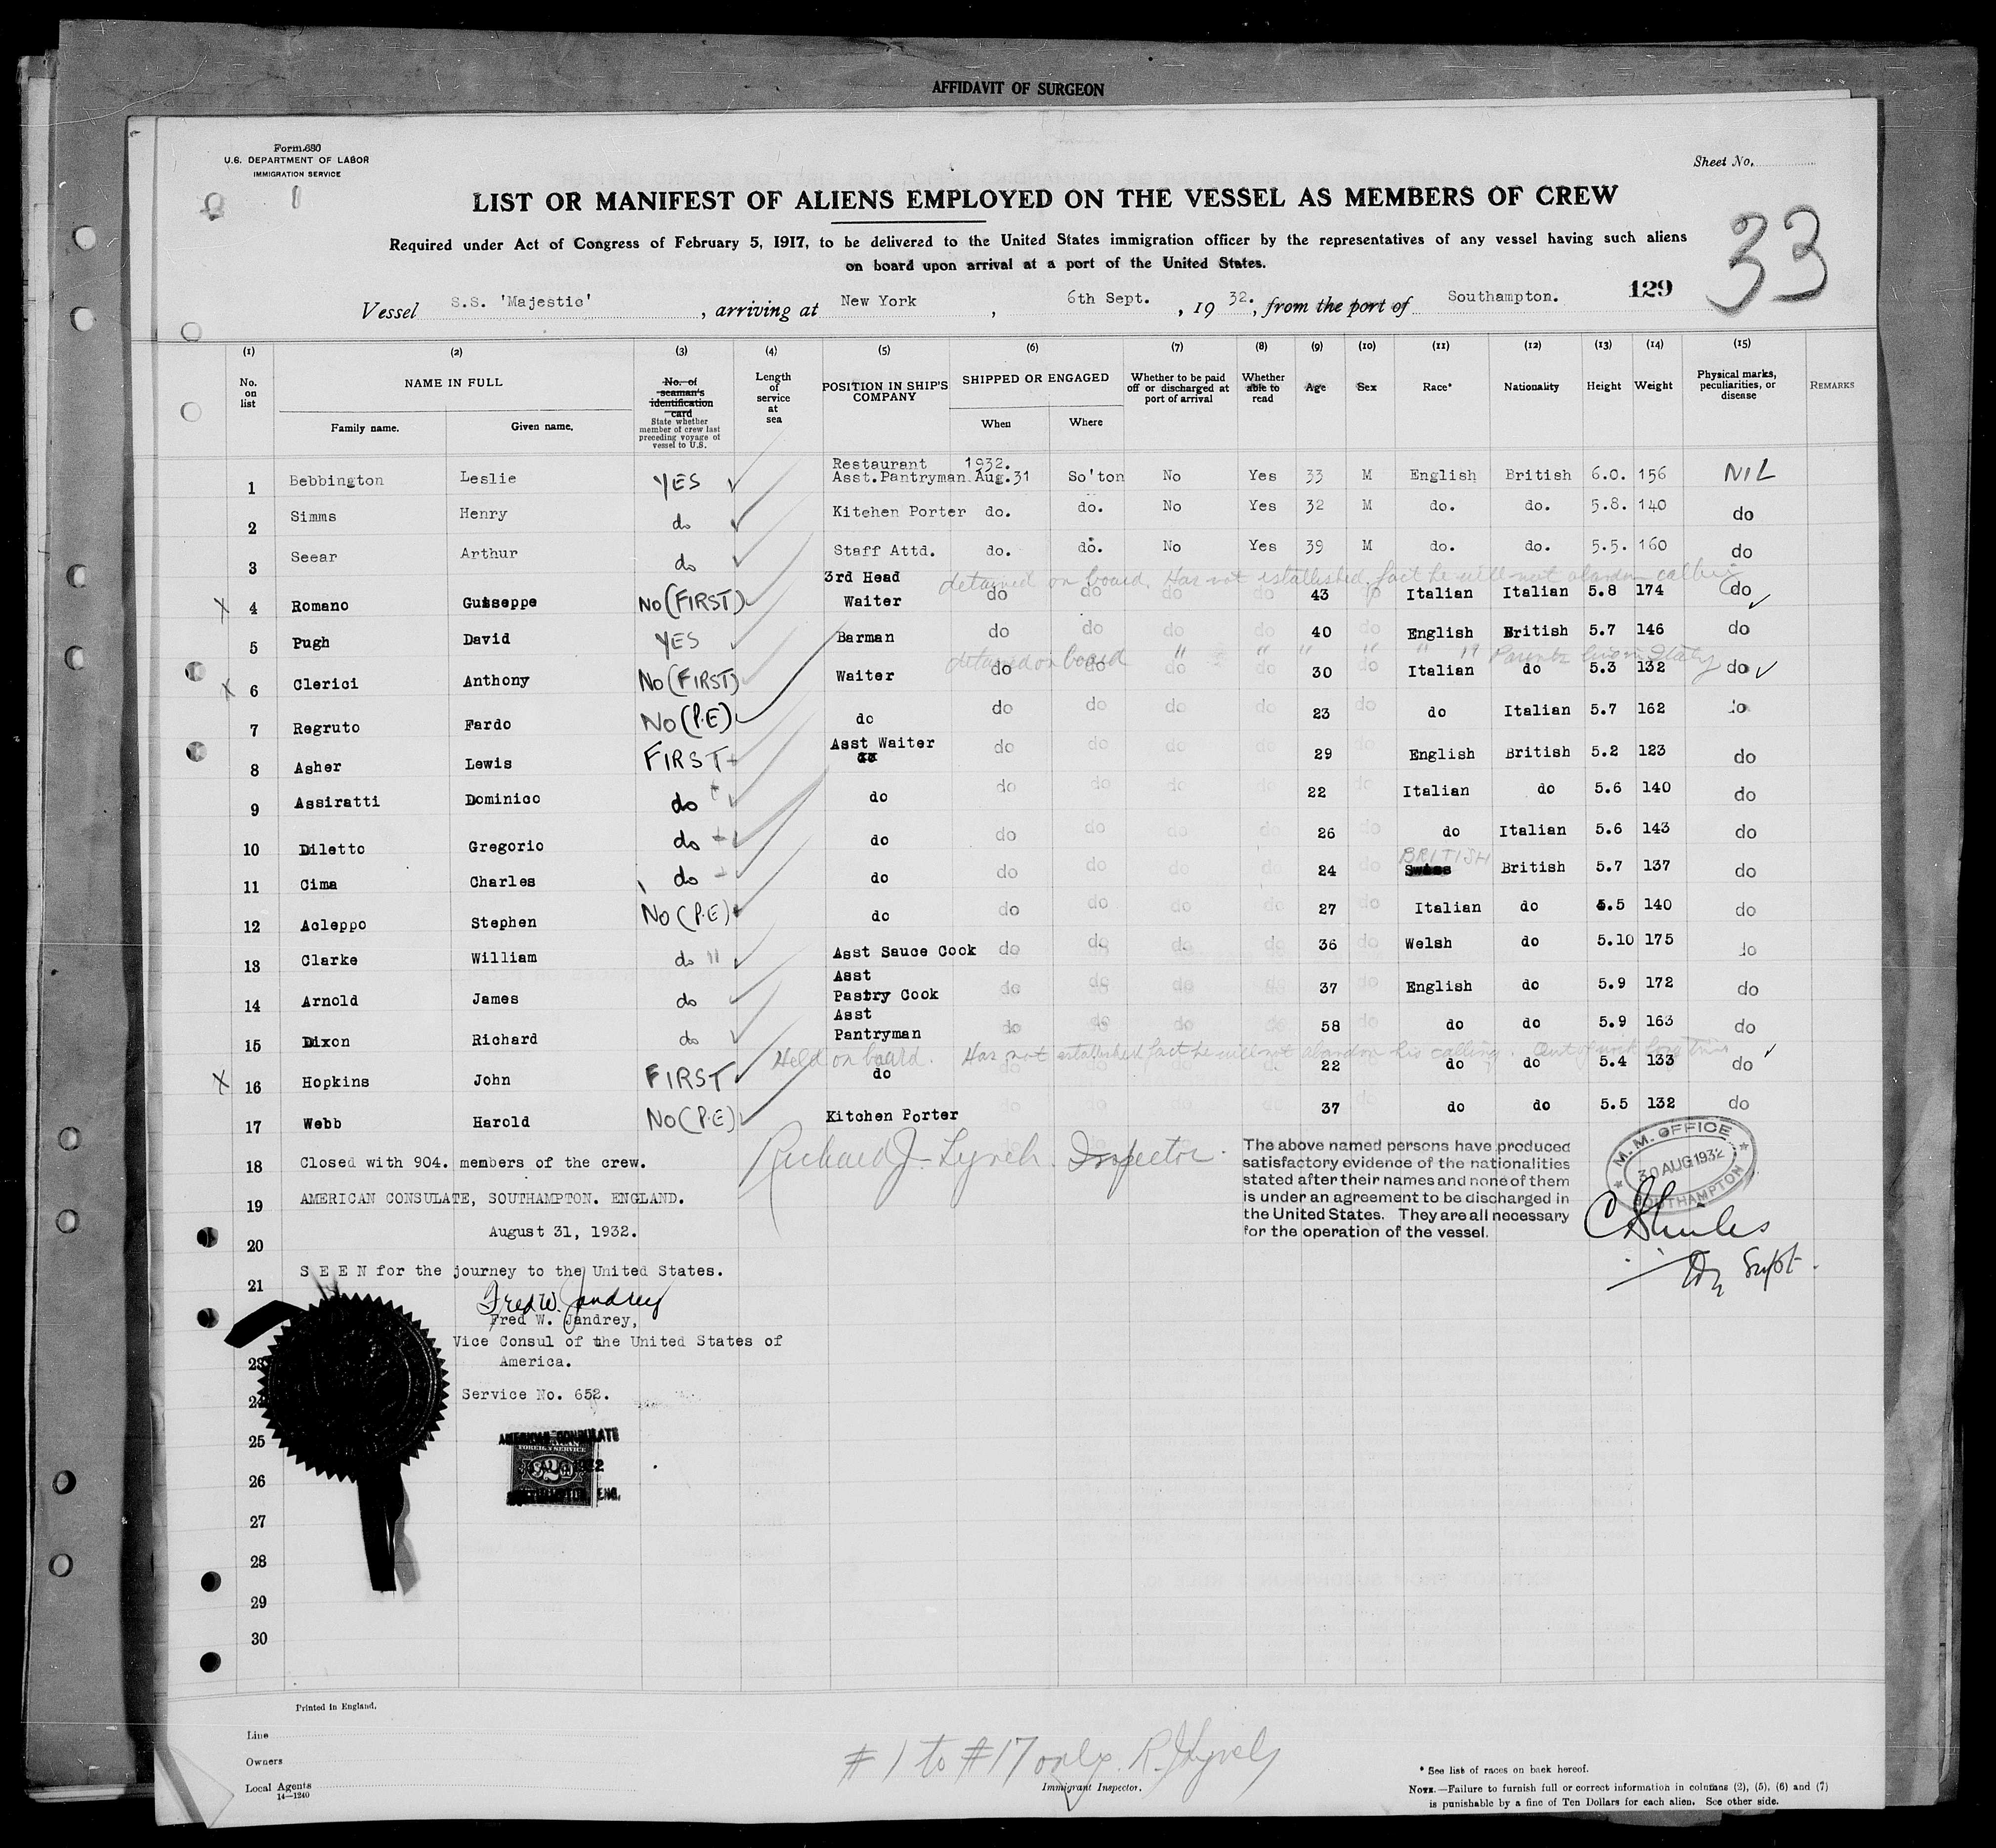 AFFIDAVIT OF SURGEON
Form 680
U.S. DEPARTMENT OF LABOR
IMMIGRATION SERVICE
Sheet No.
LIST OR MANIFEST OF ALIENS EMPLOYED ON THE VESSEL AS MEMBERS OF CREW
Required under Act of Congress of February 5, 1917, to be delivered to the United States immigration officer by the representatives of any vessel having such aliens
on board upon arrival at a port of the United States.
33
129
Vessel S.S. 'Majestic', arriving at New York, 6th Sept., 1932., from the port of Southampton.
(1) (2) (3) (4) (5) (6) (7) (8) (9) (10) (11) (12) (13) (14) (15)
No. on list
NAME IN FULL
Family name. Given name.
No. of seaman's identification card
State whether member of crew last preceding voyage of vessel to U.S.
Length of service at sea
POSITION IN SHIP'S COMPANY
SHIPPED OR ENGAGED
When Where
Whether to be paid off or discharged at port of arrival
Whether able to read
Age
Sex
Race*
Nationality
Height
Weight
Physical marks, peculiarities, or disease
REMARKS
1 Bebbington Leslie YES Restaurant Asst.Pantryman 1932. Aug.31 So'ton No Yes 33 M English British 6.0. 156 NIL
2 Simms Henry do Kitchen Porter do. do. No Yes 32 M do. do. 5.8. 140 do
3 Seear Arthur do Staff Attd. do. do. No Yes 39 M do. do. 5.5. 160 do
detained on board. Has not established fact he will not abandon calling
X 4 Romano Guiseppe NO (FIRST) 3rd Head Waiter do do do do 43 do Italian Italian 5.8 174 do
5 Pugh David YES Barman do do do do 40 do English British 5.7 146 do
detained on board " " " " " " Parents live in Italy
X 6 Clerici Anthony NO (FIRST) Waiter do do do do 30 do Italian do 5.3 132 do
7 Regruto Fardo NO (P.E) do do do do do 23 do do Italian 5.7 162 do
8 Asher Lewis FIRST Asst Waiter do do do do 29 English British 5.2 123 do
9 Assiratti Dominico do do do do do do 22 do Italian do 5.6 140 do
10 Diletto Gregorio do do do do do do 26 do do Italian 5.6 143 do
11 Cima Charles do do do do do do 24 do Swiss BRITISH British 5.7 137 do
12 Acleppo Stephen NO (P.E) do do do do do 27 do Italian do 5.5 140 do
13 Clarke William do " Asst Sauce Cook do do do do 36 do Welsh do 5.10 175 do
14 Arnold James do Asst Pastry Cook do do do do 37 do English do 5.9 172 do
15 Dixon Richard do Asst Pantryman do do do do 58 do do do 5.9 163 do
Held on board. Has not established fact he will not abandon his calling. Out of work long time
X 16 Hopkins John FIRST do do do do do 22 do do do 5.4 133 do
17 Webb Harold NO (P.E) Kitchen Porter do do do do 37 do do do 5.5 132 do
18 Closed with 904. members of the crew.
Richard J. Lynch. Inspector.
19 AMERICAN CONSULATE, SOUTHAMPTON. ENGLAND.
20 August 31, 1932.
The above named persons have produced
satisfactory evidence of the nationalities
stated after their names and none of them
is under an agreement to be discharged in
the United States. They are all necessary
for the operation of the vessel.
M.M. OFFICE
30 AUG 1932
SOUTHAMPTON
Supt.
21 S E E N for the journey to the United States.
Fred W. Jandrey
Fred W. Jandrey,
Vice Consul of the United States of
23 America.
24 Service No. 652.
25
AMERICAN CONSULATE
FOREIGN SERVICE
26
27
28
29
30
Printed in England.
Line
Owners
Local Agents
14—1240
# 1 to # 17 only. R. J. Lynch
Immigrant Inspector.
* See list of races on back hereof.
NOTE.—Failure to furnish full or correct information in columns (2), (5), (6) and (7)
is punishable by a fine of Ten Dollars for each alien. See other side.